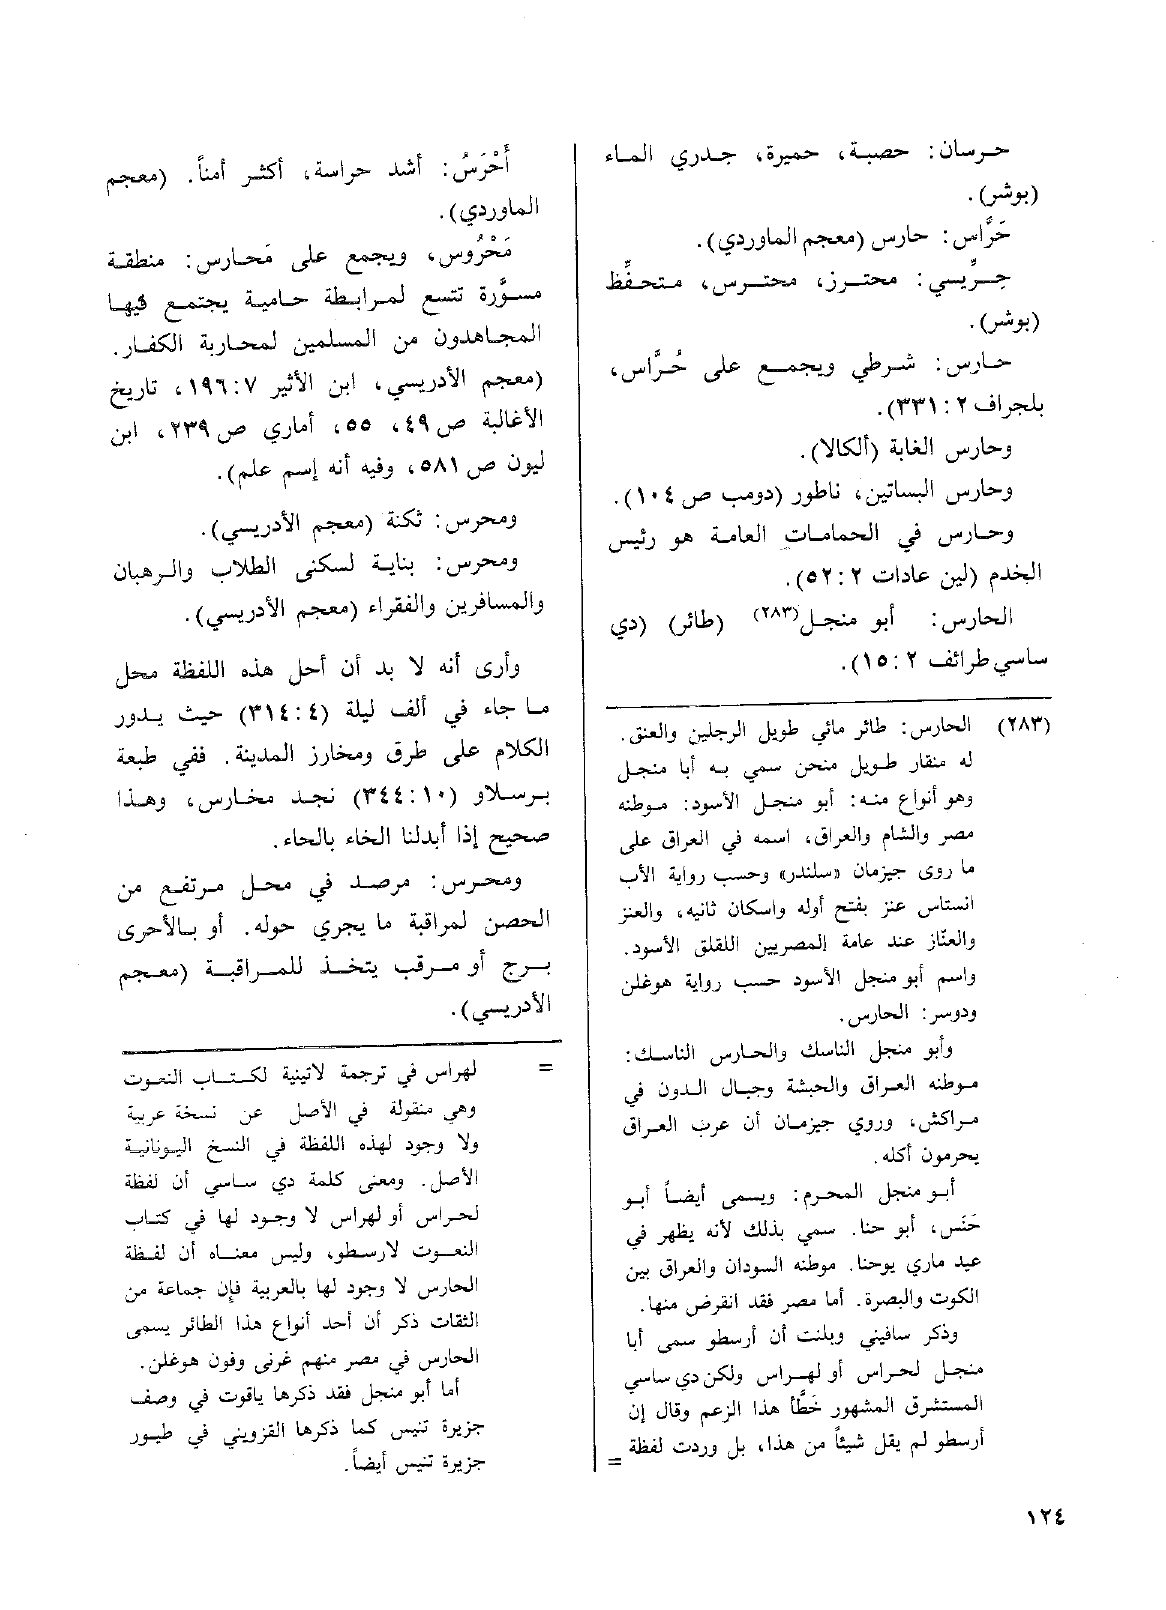 حرسان: حصبة، حميرة، جدري الماء
(بوشر).
حَرَّاس: حارس (معجم الماوردي).
حِرِّيسي: محترز، محترس، متحفِّظ
(بوشر).
حارس: شرطي ويجمع على حُرَّاس،
بلجراف ٢: ٣٣١).
وحارس الغابة (ألكالا).
وحارس البساتين، ناطور (دومب ص ١٠٤).
وحارس في الحمامات العامة هو رئيس
الخدم (لين عادات ٢: ٥٢).
الحارس: أبو منجل(٢٨٣) (طائر) (دي
ساسي طرائف ٢: ١٥).
(٢٨٣) الحارس: طائر مائي طويل الرجلين والعنق.
له منقار طويل منحن سمي به أبا منجل
وهو أنواع منه: أبو منجل الأسود: موطنه
مصر والشام والعراق، اسمه في العراق على
ما روى جيزمان «سلندر» وحسب رواية الأب
انستاس عنز بفتح أوله واسكان ثانيه، والعنز
والعنّاز عند عامة المصريين اللقلق الأسود.
واسم أبو منجل الأسود حسب رواية هوغلن
ودوسر: الحارس.
وأبو منجل الناسك والحارس الناسك:
موطنه العراق والحبشة وجبال الدون في
مراكش، وروي جيزمان أن عرب العراق
يحرمون أكله.
أبو منجل المحرم: ويسمى أيضاً أبو
حَنَس، أبو حنا. سمي بذلك لأنه يظهر في
عيد ماري يوحنا. موطنه السودان والعراق بين
الكوت والبصرة. أما مصر فقد انقرض منها.
وذكر سافيني وبلنت أن أرسطو سمى أبا
منجل لحراس أو لهراس ولكن دي ساسي
المستشرق المشهور خَطَّأ هذا الزعم وقال إن
أرسطو لم يقل شيئاً من هذا، بل وردت لفظة =
أَحْرَسُ: أشد حراسة، أكثر أمناً. (معجم
الماوردي).
مَحْرُوس، ويجمع على مَحارس: منطقة
مسوَّرة تتسع لمرابطة حامية يجتمع فيها
المجاهدون من المسلمين لمحاربة الكفار.
(معجم الأدريسي، ابن الأثير ٧: ١٩٦، تاريخ
الأغالبة ص ٤٩، ٥٥، أماري ص ٢٣٩، ابن
ليون ص ٥٨١، وفيه أنه إسم علم).
ومحرس: ثكنة (معجم الأدريسي).
ومحرس: بناية لسكنى الطلاب والرهبان
والمسافرين والفقراء (معجم الأدريسي).
وأرى أنه لا بد أن أحل هذه اللفظة محل
ما جاء في ألف ليلة (٤: ٣١٤) حيث يدور
الكلام على طرق ومخارز المدينة. ففي طبعة
برسلاو (١٠: ٣٤٤) نجد مخارس، وهذا
صحيح إذا أبدلنا الخاء بالحاء.
ومحرس: مرصد في محل مرتفع من
الحصن لمراقبة ما يجري حوله. أو بالأحرى
برج أو مرقب يتخذ للمراقبة (معجم
الأدريسي).
= لهراس في ترجمة لاتينية لكتاب النعوت
وهي منقولة في الأصل عن نسخة عربية
ولا وجود لهذه اللفظة في النسخ اليونانية
الأصل. ومعنى كلمة دي ساسي أن لفظة
لحراس أو لهراس لا وجود لها في كتاب
النعوت لارسطو، وليس معناه أن لفظة
الحارس لا وجود لها بالعربية فإن جماعة من
الثقات ذكر أن أحد أنواع هذا الطائر يسمى
الحارس في مصر منهم غرنى وفون هوغلن.
أما أبو منجل فقد ذكرها ياقوت في وصف
جزيرة تنيس كما ذكرها القزويني في طيور
جزيرة تنيس أيضاً.
١٢٤